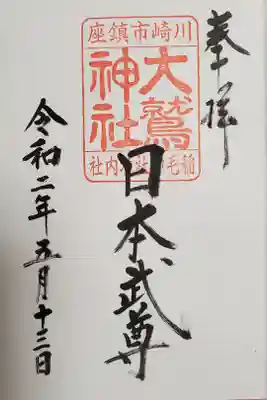 奉拝
川崎市鎮座
大鷲神社
稲毛神社境内社
日本武尊
令和二年五月十三日